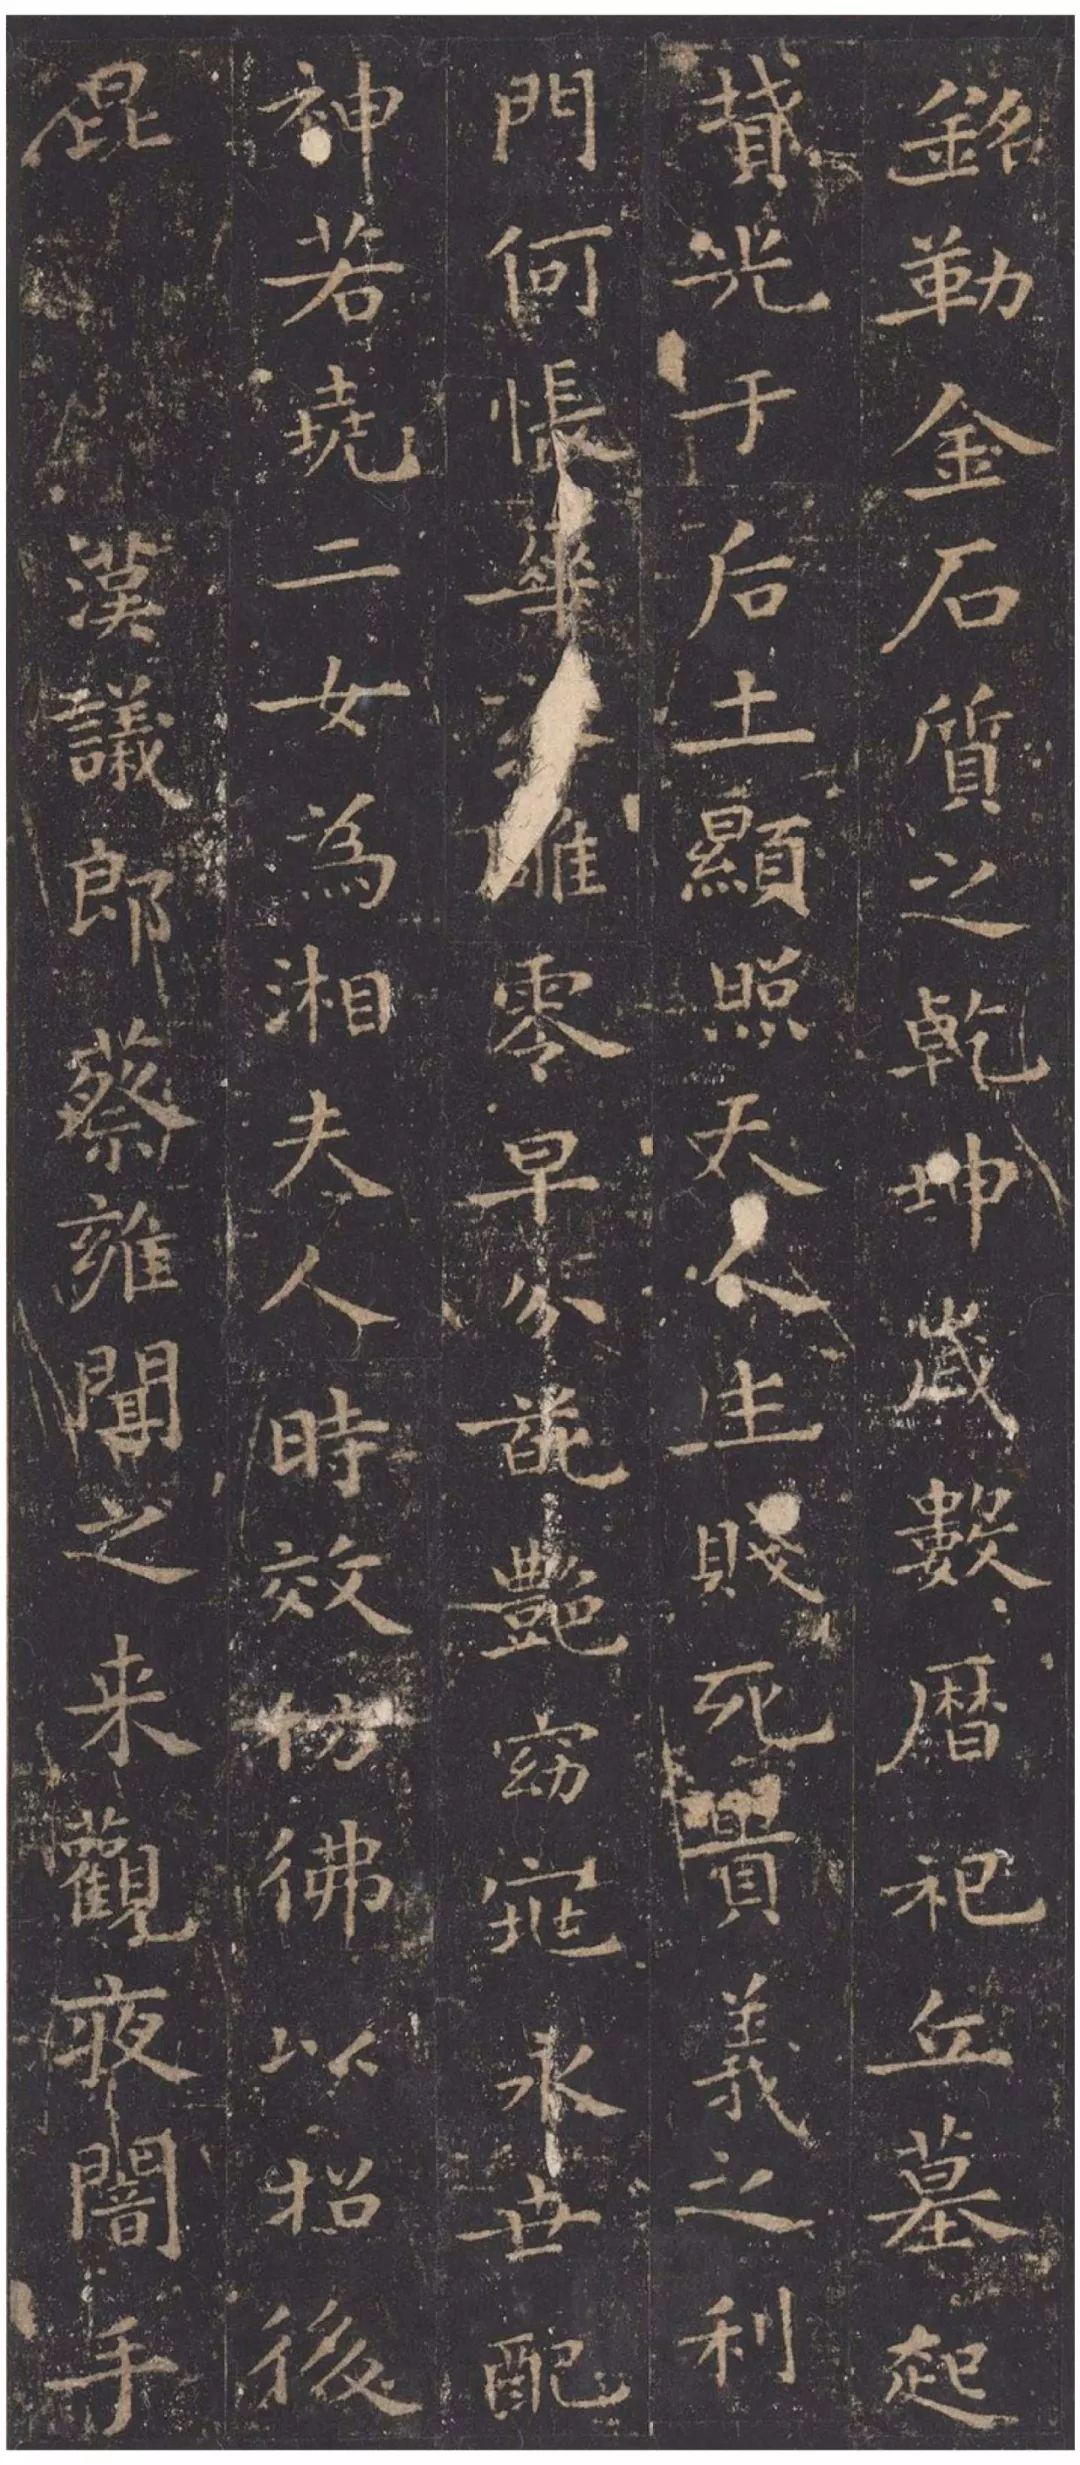 銘勒金石質之乾坤歲數暦祀丘墓起
墳光于后土顯照天人生賤死貴義之利
門何悵華雕零早分葩艶窈窕永世配
神若堯二女為湘夫人時效仿彿以招後
昆 漢議郎蔡雍聞之来觀夜闇手